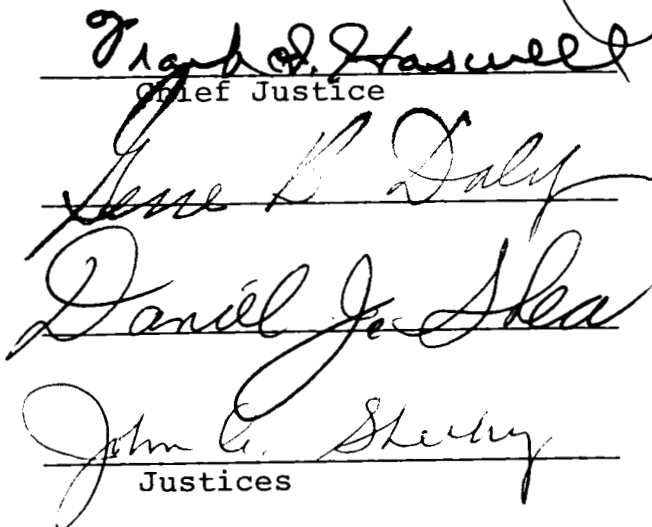 Frank I. Haswell
Chief Justice
Gene B Daly
Daniel J. Shea
John C. Sheehy
Justices